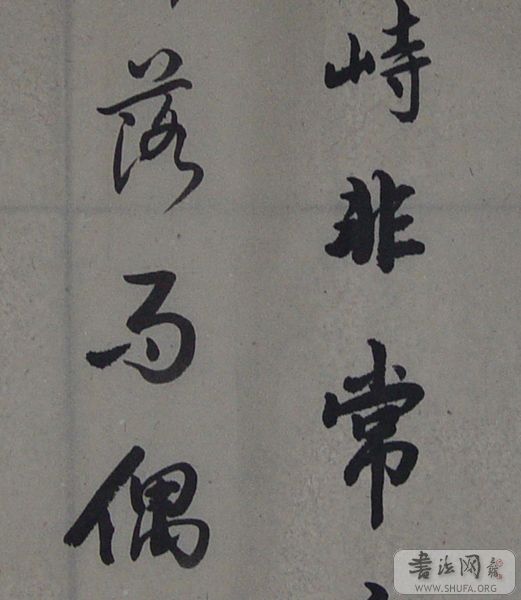 峙非常
落而偶
书法网
WWW.SHUFA.ORG